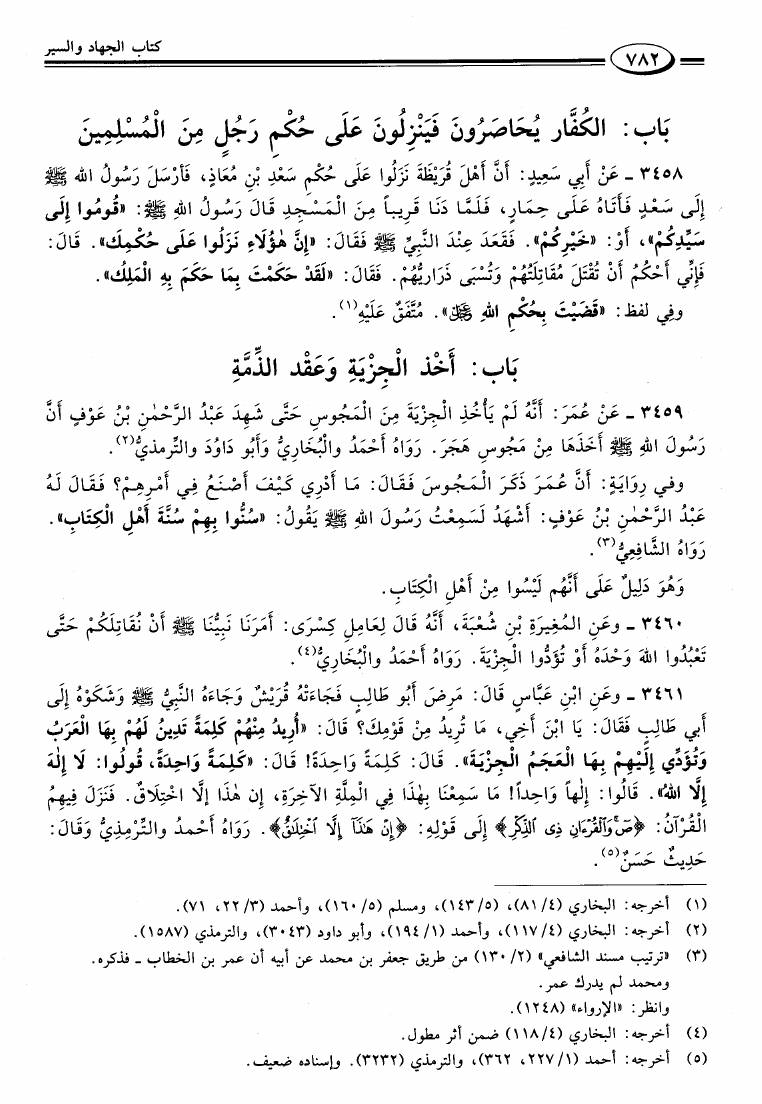 كتاب الجهاد والسير
٧٨٢
بَاب: الكُفَّار يُحَاصَرُونَ فَيَنْزِلُونَ عَلَى حُكْمِ رَجُلٍ مِنَ الْمُسْلِمِينَ
٣٤٥٨ ـ عَنْ أَبِي سَعِيدٍ: أَنَّ أَهْلَ قُرَيْظَةَ نَزَلُوا عَلَى حُكْمِ سَعْدِ بْنِ مُعَاذٍ، فَأَرْسَلَ رَسُولُ الله ﷺ
إِلَى سَعْدٍ فَأَتَاهُ عَلَى حِمَارٍ، فَلَمَّا دَنَا قَرِيباً مِنَ الْمَسْجِدِ قَالَ رَسُولُ اللهِ ﷺ: «قُومُوا إِلَى
سَيِّدِكُمْ»، أَوْ: «خَيْرِكُمْ». فَقَعَدَ عِنْدَ النَّبِيِّ ﷺ فَقَالَ: «إِنَّ هٰؤُلَاءِ نَزَلُوا عَلَى حُكْمِكَ». قَالَ:
فَإِنِّي أَحْكُمُ أَنْ تُقْتَلَ مُقَاتِلَتُهُمْ وَتُسْبَى ذَرَارِيُّهُمْ. فَقَالَ: «لَقَدْ حَكَمْتَ بِمَا حَكَمَ بِهِ الْمَلِكُ».
وفِي لفظ: «قَضَيْتَ بِحُكْمِ اللهِ ﷿». مُتَّفَقٌ عَلَيْهِ(١).
بَاب: أَخْذ الْجِزْيَةِ وَعَقْد الذِّمَّةِ
٣٤٥٩ ـ عَنْ عُمَرَ: أَنَّهُ لَمْ يَأْخُذِ الْجِزْيَةَ مِنَ الْمَجُوسِ حَتَّى شَهِدَ عَبْدُ الرَّحْمٰنِ بْنُ عَوْفٍ أَنَّ
رَسُولَ اللهِ ﷺ أَخَذَهَا مِنْ مَجُوسِ هَجَرَ. رَوَاهُ أَحْمَدُ والْبُخَارِيُّ وَأَبُو دَاوُدَ والتِّرمذيُّ(٢).
وفي رِوَايَةٍ: أَنَّ عُمَرَ ذَكَرَ الْمَجُوسَ فَقَالَ: مَا أَدْرِي كَيْفَ أَصْنَعُ فِي أَمْرِهِمْ؟ فَقَالَ لَهُ
عَبْدُ الرَّحْمٰنِ بْنُ عَوْفٍ: أَشْهَدُ لَسَمِعْتُ رَسُولَ اللهِ ﷺ يَقُولُ: «سُنُّوا بِهِمْ سُنَّةَ أَهْلِ الْكِتَابِ».
رَوَاهُ الشَّافِعِيُّ(٣).
وَهُوَ دَلِيلٌ عَلَى أَنَّهُم لَيْسُوا مِنْ أَهْلِ الْكِتَابِ.
٣٤٦٠ ـ وعَنِ الْمُغِيرَةِ بْنِ شُعْبَةَ، أَنَّهُ قَالَ لِعَامِلِ كِسْرَى: أَمَرَنَا نَبِيُّنَا ﷺ أَنْ نُقَاتِلَكُمْ حَتَّى
تَعْبُدُوا اللهَ وَحْدَهُ أَوْ تُؤَدُّوا الْجِزْيَةَ. رَوَاهُ أَحْمَدُ والْبُخَارِيُّ(٤).
٣٤٦١ ـ وعَنِ ابْنِ عَبَّاسٍ قَالَ: مَرِضَ أَبُو طَالِبٍ فَجَاءَتْهُ قُرَيْشٌ وَجَاءَهُ النَّبِيُّ ﷺ وَشَكَوْهُ إِلَى
أَبِي طَالِبٍ فَقَالَ: يَا ابْنَ أَخِي، مَا تُرِيدُ مِنْ قَوْمِكَ؟ قَالَ: «أُرِيدُ مِنْهُمْ كَلِمَةً تَدِينُ لَهُمْ بِهَا الْعَرَبُ
وَتُؤَدِّي إِلَيْهِمْ بِهَا الْعَجَمُ الْجِزْيَةَ». قَالَ: كَلِمَةً وَاحِدَةً! قَالَ: «كَلِمَةً وَاحِدَةً، قُولُوا: لَا إِلٰهَ
إِلَّا اللهُ». قَالُوا: إِلٰهاً وَاحِداً! مَا سَمِعْنَا بِهٰذَا فِي الْمِلَّةِ الآخِرَةِ، إن هٰذَا إِلَّا اخْتِلَاقٌ. فَنَزَلَ فِيهِمُ
الْقُرْآنُ: ﴿صٓ وَٱلْقُرْءَانِ ذِى ٱلذِّكْرِ﴾ إِلَى قَوْلِهِ: ﴿إِنْ هَٰذَآ إِلَّا ٱخْتِلَٰقٌ﴾. رَوَاهُ أَحْمدُ والتِّرْمِذِيُّ وَقَالَ:
حَدِيثٌ حَسَنٌ(٥).
(١) أخرجه: البخاري (٨١/٤)، (١٤٣/٥)، ومسلم (١٦٠/٥)، وأحمد (٢٢/٣، ٧١).
(٢) أخرجه: البخاري (١١٧/٤)، وأحمد (١٩٤/١)، وأبو داود (٣٠٤٣)، والترمذي (١٥٨٧).
(٣) «ترتيب مسند الشافعي» (١٣٠/٢) من طريق جعفر بن محمد عن أبيه أن عمر بن الخطاب ـ فذكره.
ومحمد لم يدرك عمر.
وانظر: «الإرواء» (١٢٤٨).
(٤) أخرجه: البخاري (١١٨/٤) ضمن أثر مطول.
(٥) أخرجه: أحمد (٢٢٧/١، ٣٦٢)، والترمذي (٣٢٣٢). وإسناده ضعيف.